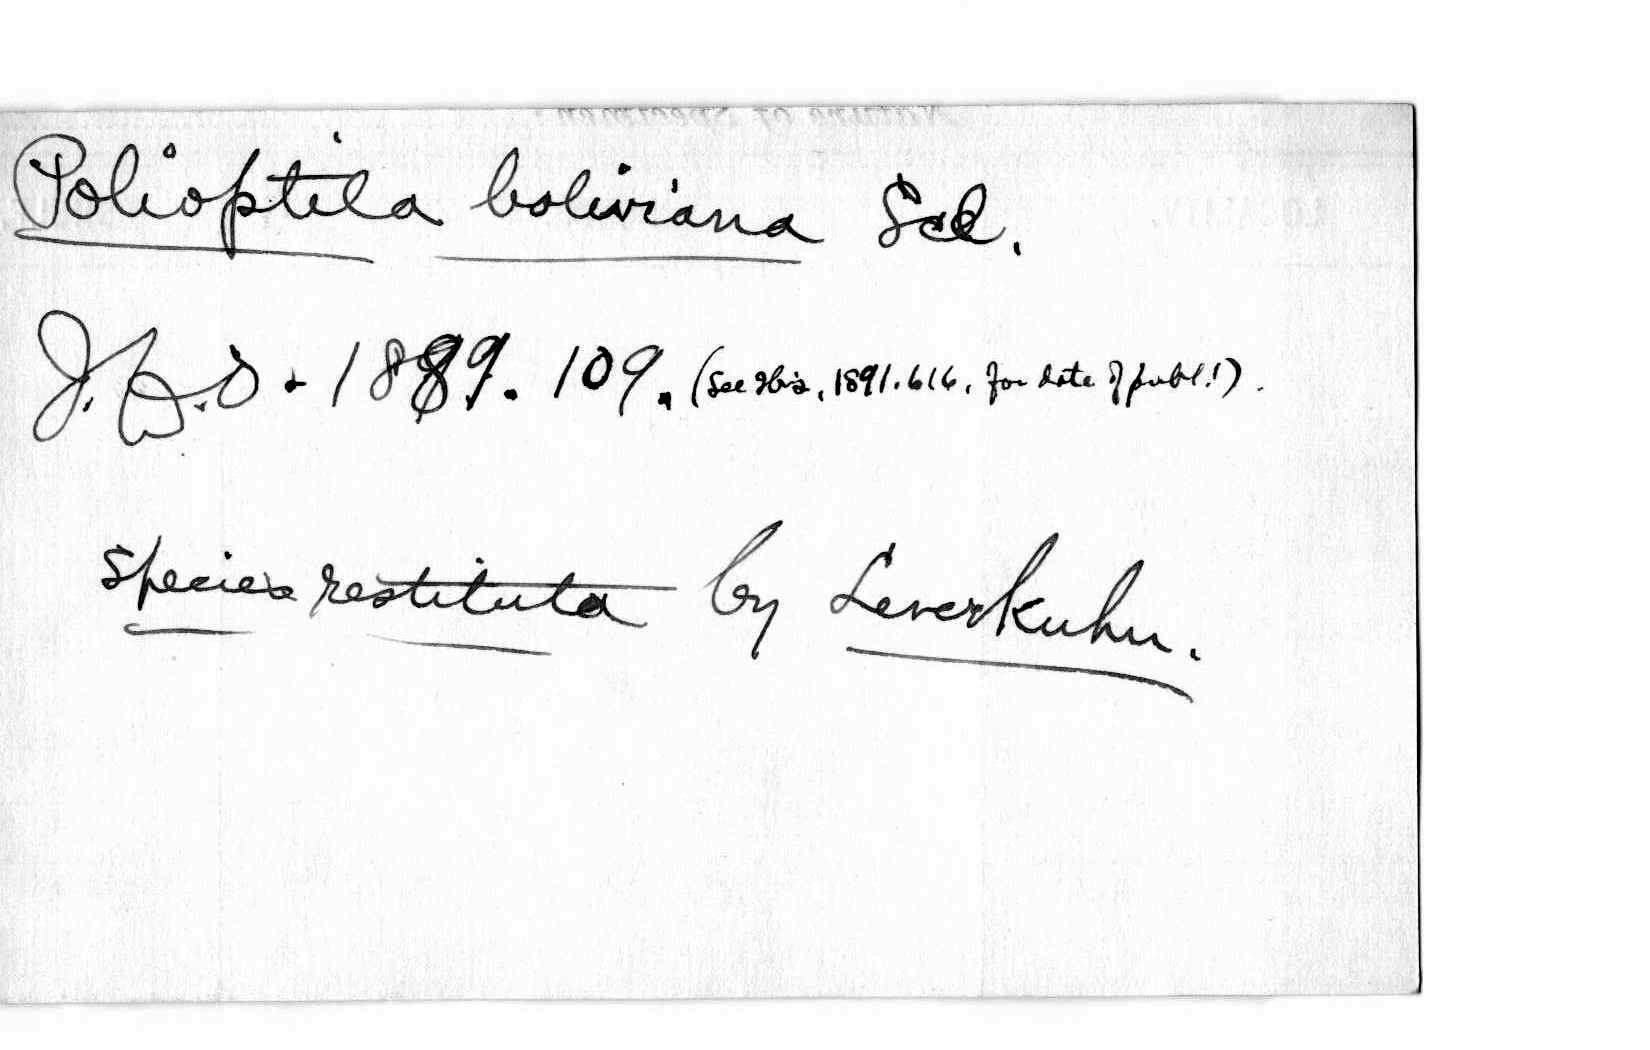 Polioptila boliviana Scl.
J. f. O. 1889. 109. (See Ibis, 1891. 616, for date of publ.!).
Species restituta by Leverkuhn.